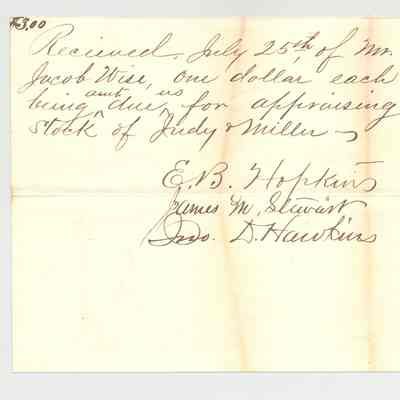 $3.00
Recieved, July 25th, of Mr.
Jacob Wise, one dollar each
amt us
being due, for appraising
stock of Judy & Miller
E. B. Hopkins
James M. Stewart
Jno. D. Hawkins